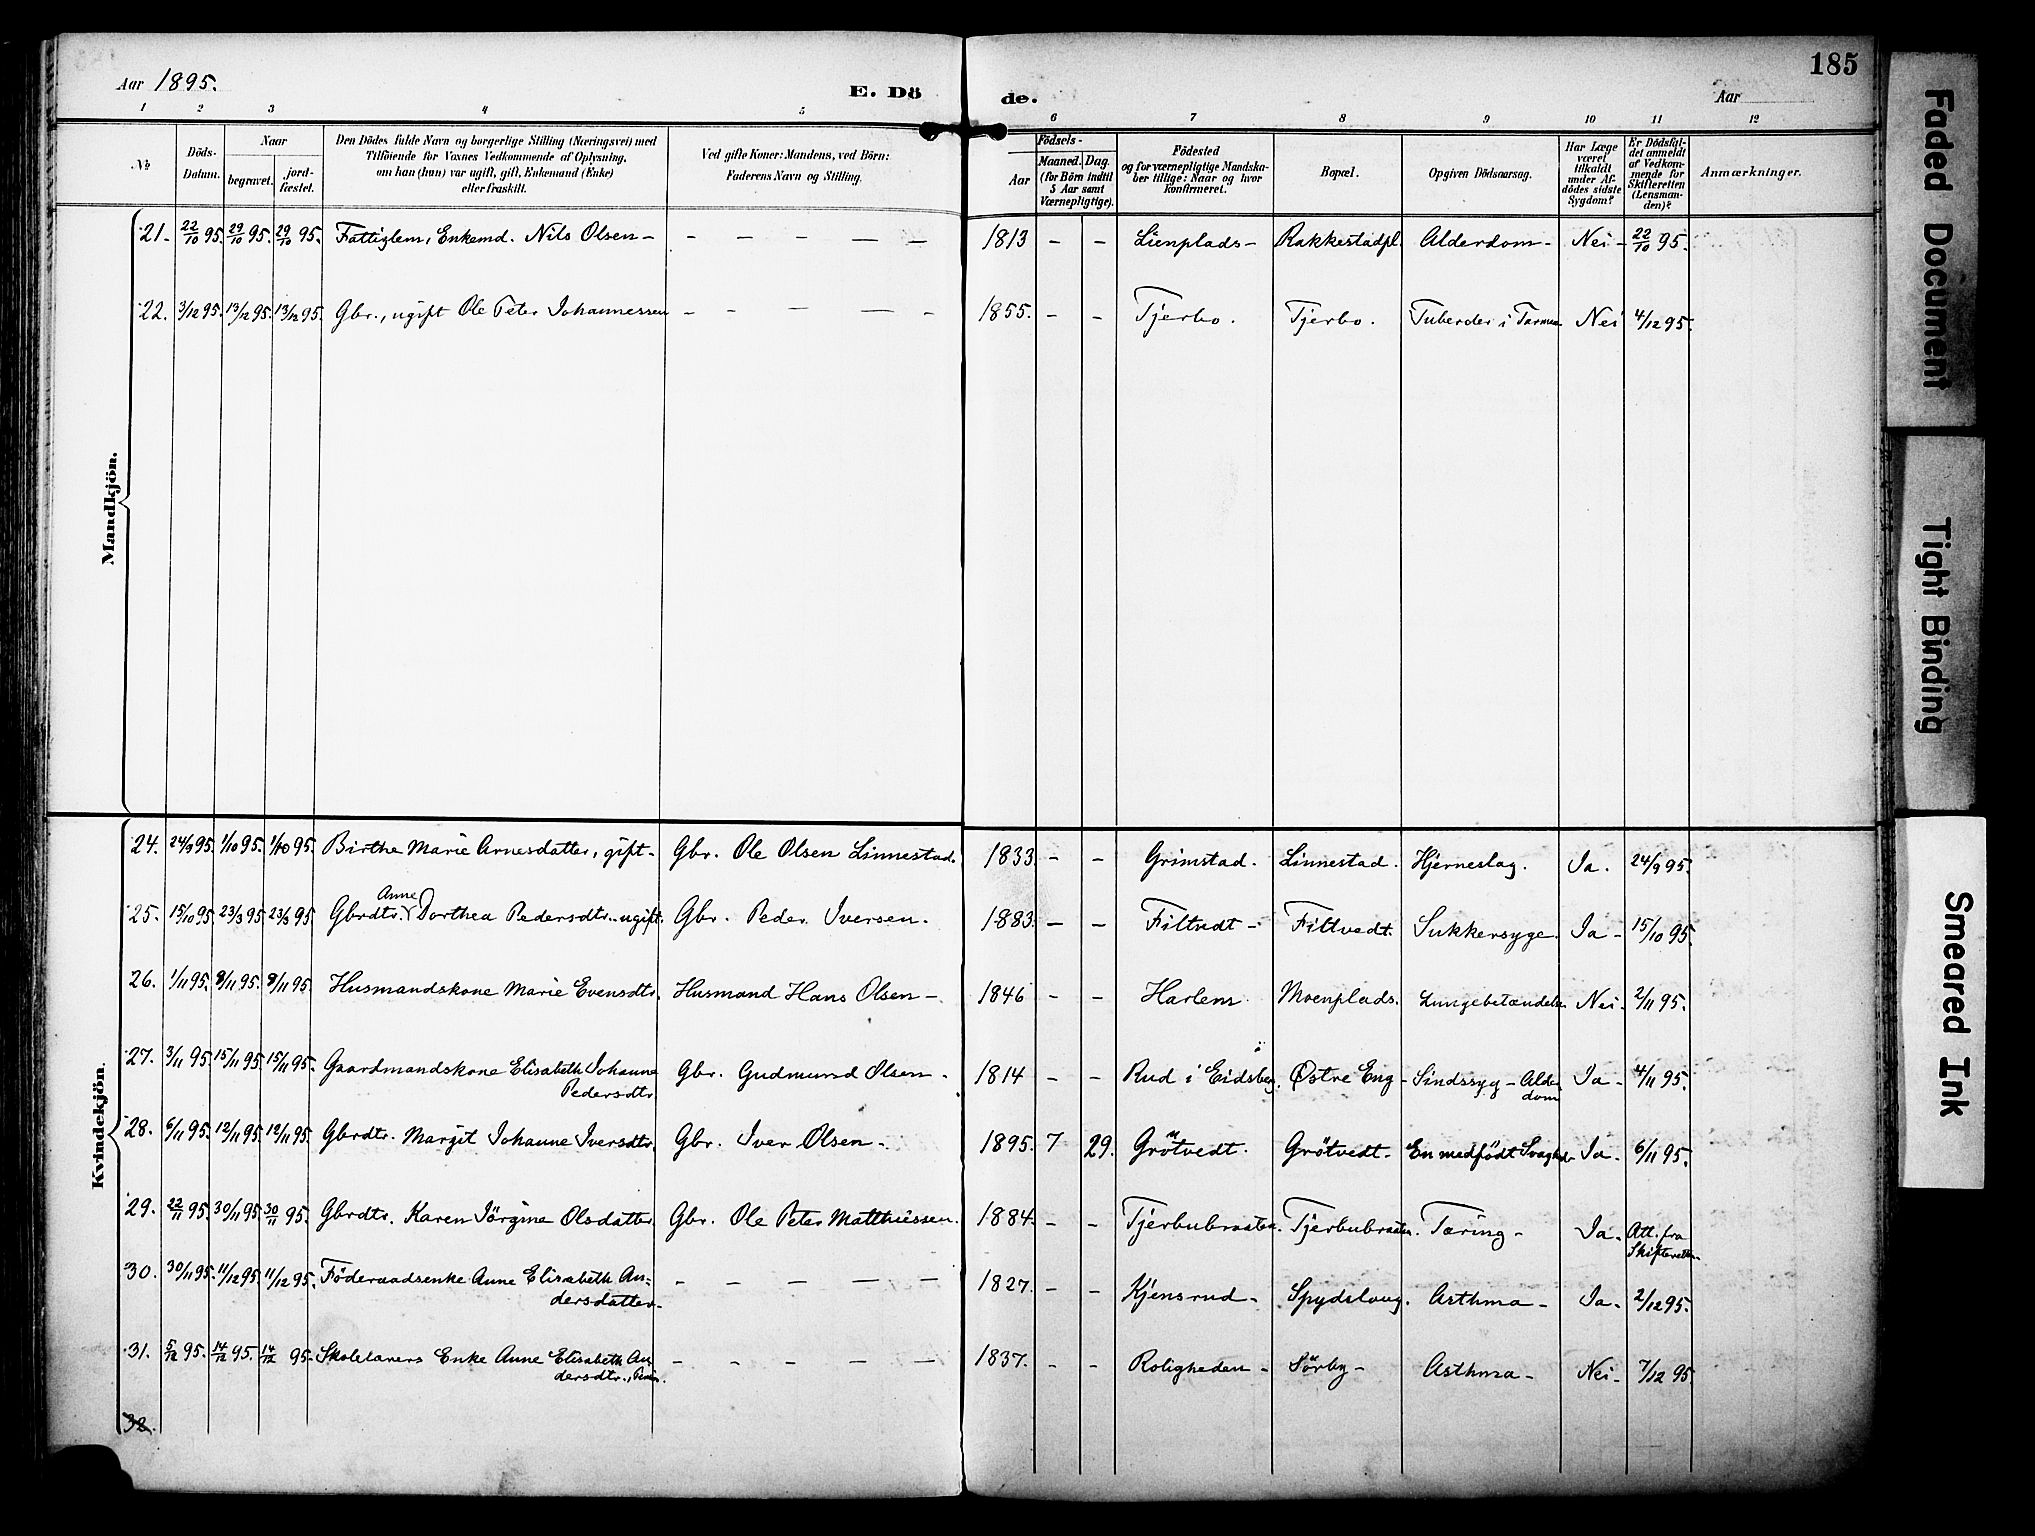 Aar 1895.
E. Döde.
Aar
185
1 2 3 4 5 6 7 8 9 10 11 12
No.
Döds-Datum.
Naar
begravet.
jordfæstet.
Den Dödes fulde Navn og borgerlige Stilling (Næringsvei) med
Tilföiende for Voxnes Vedkommende af Oplysning,
om han (hun) var ugift, gift, Enkemand (Enke)
eller fraskilt.
Ved gifte Koner: Mandens, ved Börn:
Faderens Navn og Stilling.
Födsels-
Aar
Maaned. Dag.
(for Börn indtil
5 Aar samt
Værnepligtige).
Födested
og for værnepligtige Mandska-
ber tillige: Naar og hvor
konfirmeret.
Bopæl.
Opgiven Dödsaarsag.
Har Læge
været
tilkaldt
under Af-
dödes sidste
Sygdom?
Er Dödsfal-
det anmeldt
af Vedkom-
mende for
Skifteretten
(Lensman-
den)?
Anmærkninger.
Mandkjön.
21. 22/10 95. 29/10 95. 29/10 95. Fattiglem, Enkemd. Nils Olsen – – – – – – 1813 – – Lienplads – Rakkestadpl. Alderdom – Nei – 22/10 95.
22. 3/12 95. 13/12 95. 13/12 95. Gbr., ugift Ole Peter Johannessen – – – – – 1855. – – Tjerbo. Tjerbo. Tuberder i Tarmen Nei 4/12 95.
Kvindekjön.
24. 24/9 95. 1/10 95. 1/10 95. Birthe Marie Arnesdatter, gift – Gbr. Ole Olsen Linnestad. 1833 – – Grimstad. Linnestad. Hjerneslag. Ja. 24/9 95.
25. 15/10 95. 23/3 95 23/3 95 Gbrdtr. Anne Dorthea Pedersdtr. ugift. Gbr. Peder Iversen. 1883. – – Filtvedt – Filtvedt. Sukkersyge. Ja – 15/10 95.
26. 1/11 95. 9/11 95. 9/11 95. Husmandskone Marie Evensdtr. Husmand Hans Olsen – 1846 – – Harlem Moenplads. Lungebetændelse Nei. 2/11 95.
27. 3/11 95. 15/11 95. 15/11 95. Gaardmandskone Elisabeth Johanne
Pedersdtr. Gbr. Gudmund Olsen. 1814 – – Rud i Eidsberg. Østre Eng – Sindssyg – Alder
dom Ja – 4/11 95.
28. 6/11 95. 12/11 95. 12/11 95. Gbrdtr. Margit Johanne Iversdtr. Gbr. Iver Olsen. 1895. 7 29. Grötvedt. Grötvedt. En medfödt Svaghed Ja. 6/11 95.
29. 22/11 95. 30/11 95. 30/11 95. Gbrdtr. Karen Jörgine Olsdatter. Gbr. Ole Peter Matthiessen. 1884. – – Tjerbubraaten. Tjerbubraaten. Tæring – Ja. Att. fra
Skifteretten
30. 30/11 95. 11/12 95. 11/12 95. Föderaadsenke Anne Elisabeth An-
dersdatter. – – – – – 1827. – – Kjensrud – Spydslaug. Asthma – Ja. 2/12 95.
31. 5/12 95. 14/12 95. 14/12 95. Skolelærers Enke Anne Elisabeth An-
dersdtr. – – – – – 1837. – – Roligheden – Sörby – Asthma – Nei – 7/12 95.
32.
Faded Document
Tight Binding
Smeared Ink